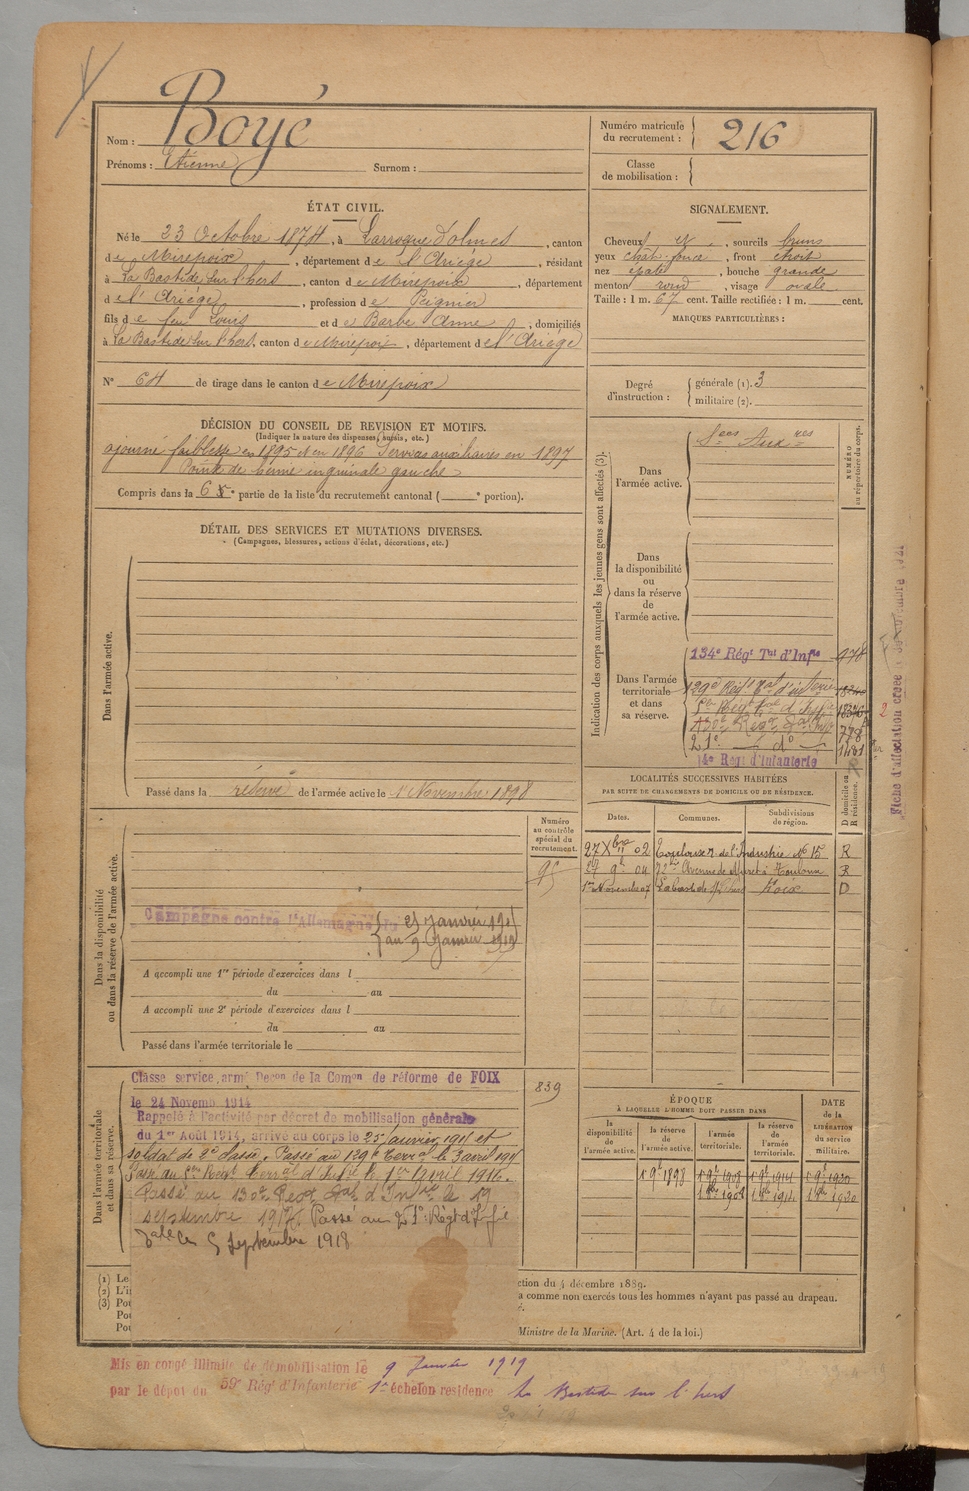 Nom : Boyé
Prénoms : Etienne Surnom :
Numéro matricule du recrutement : 216
Classe de mobilisation :
ÉTAT CIVIL.
Né le 23 Octobre 1874, à Larroque d'olmes, canton
de Mirepoix, département de l'Ariège, résidant
à La Bastide sur l'hers, canton de Mirepoix, département
de l'Ariège, profession de Peignier
fils de feu Louis et de Barbe Anne, domiciliés
à La Bastide sur l'hers, canton de Mirepoix, département de l'Ariège
N° 64 de tirage dans le canton de Mirepoix
SIGNALEMENT.
Cheveux et, sourcils bruns
yeux chât. foncé, front étroit
nez épaté, bouche grande
menton rond, visage ovale
Taille : 1 m. 67 cent. Taille rectifiée : 1 m. cent.
MARQUES PARTICULIÈRES :
Degré d'instruction : générale (1). 3
militaire (2).
DÉCISION DU CONSEIL DE REVISION ET MOTIFS.
(Indiquer la nature des dispenses, sursis, etc.)
ajourné faiblesse en 1895 et en 1896 Services auxiliaires en 1897
Pointe de hernie inguinale gauche
Compris dans la 6 e partie de la liste du recrutement cantonal ( e portion).
DÉTAIL DES SERVICES ET MUTATIONS DIVERSES.
(Campagnes, blessures, actions d'éclat, décorations, etc.)
Dans l'armée active.
Passé dans la réserve de l'armée active le 1 Novembre 1898
Indication des corps auxquels les jeunes gens sont affectés (3).
NUMÉRO au répertoire du corps.
Dans l'armée active.
Sces Auxres
Dans la disponibilité ou dans la réserve de l'armée active.
Dans l'armée territoriale et dans sa réserve.
134e Régt Tal d'Infie 978
129e Régt Tal d'infterie
130e Régt Tal Inf 778
21e do 1481
14e Régt d'Infanterie
Fiche d'affectation créée
Dans la disponibilité ou dans la réserve de l'armée active.
Numéro au contrôle spécial du recrutement.
95
Campagne contre l'Allemagne du 25 Janvier 1915
au 9 Janvier 1919
A accompli une 1re période d'exercices dans l
du au
A accompli une 2e période d'exercices dans l
du au
Passé dans l'armée territoriale le
LOCALITÉS SUCCESSIVES HABITÉES
PAR SUITE DE CHANGEMENTS DE DOMICILE OU DE RÉSIDENCE.
D domicile ou R résidence.
Dates. Communes. Subdivisions de région.
27 Xbre 02 Toulouse r. de l'Industrie No 15 R
Avenue de Muret à Toulouse R
1er Novembre 07 Labastide s/ l'hers Foix D
Dans l'armée territoriale et dans sa réserve.
839
Classe service armé Decon de la Comon de réforme de FOIX
le 24 Novemb 1914
Rappelé à l'activité par décret de mobilisation générale
du 1er Août 1914, arrivé au corps le 25 Janvier 1915 et
soldat de 2e classe. Passé au 129e Terral le 3 avril 1915
Passé au Régt Terral d'Infie le 1er avril 1916.
Passé au 130e Régt Tal d'Infie le 19
septembre 1917. Passé au 21e Régt d'Infie
Tale le 5 Septembre 1918
ÉPOQUE
À LAQUELLE L'HOMME DOIT PASSER DANS
la disponibilité de l'armée active. la réserve de l'armée active. l'armée territoriale. la réserve de l'armée territoriale.
DATE de la LIBÉRATION du service militaire.
1 9bre 1898 1 9bre 1908 1 9bre 1914 1 9bre 1920
(1) Le
(2) L'i
(3) Pou
Pou
Pou
ction du 4 décembre 1889.
a comme non exercés tous les hommes n'ayant pas passé au drapeau.
Ministre de la Marine. (Art. 4 de la loi.)
Mis en congé illimité de démobilisation le 9 Janvier 1919
par le dépôt du 59e Régt d'Infanterie 1er échelon residence La Bastide sur l'hers